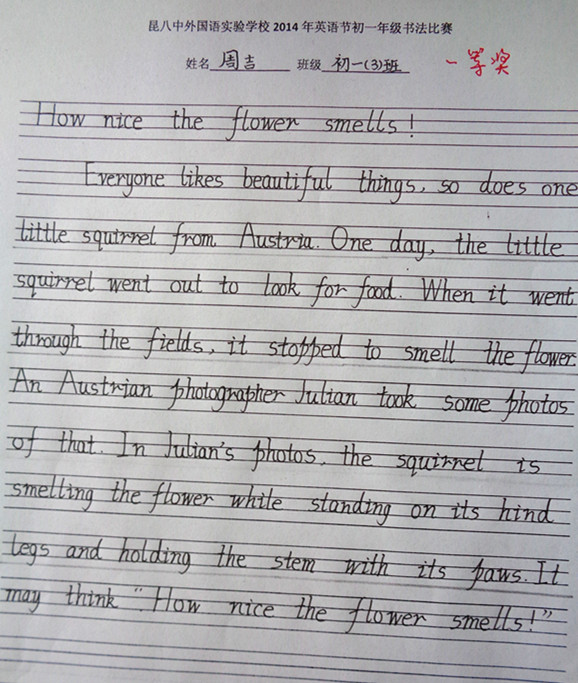 昆八中外国语实验学校 2014 年英语节初一年级书法比赛
姓名 周吉 班级 初一(3)班 一等奖
How nice the flower smells!
Everyone likes beautiful things, so does one
little squirrel from Austria. One day, the little
squirrel went out to look for food. When it went
through the fields, it stopped to smell the flower.
An Austrian photographer Julian took some photos
of that. In Julian's photos, the squirrel is
smelling the flower while standing on its hind
legs and holding the stem with its paws. It
may think "How nice the flower smells!"